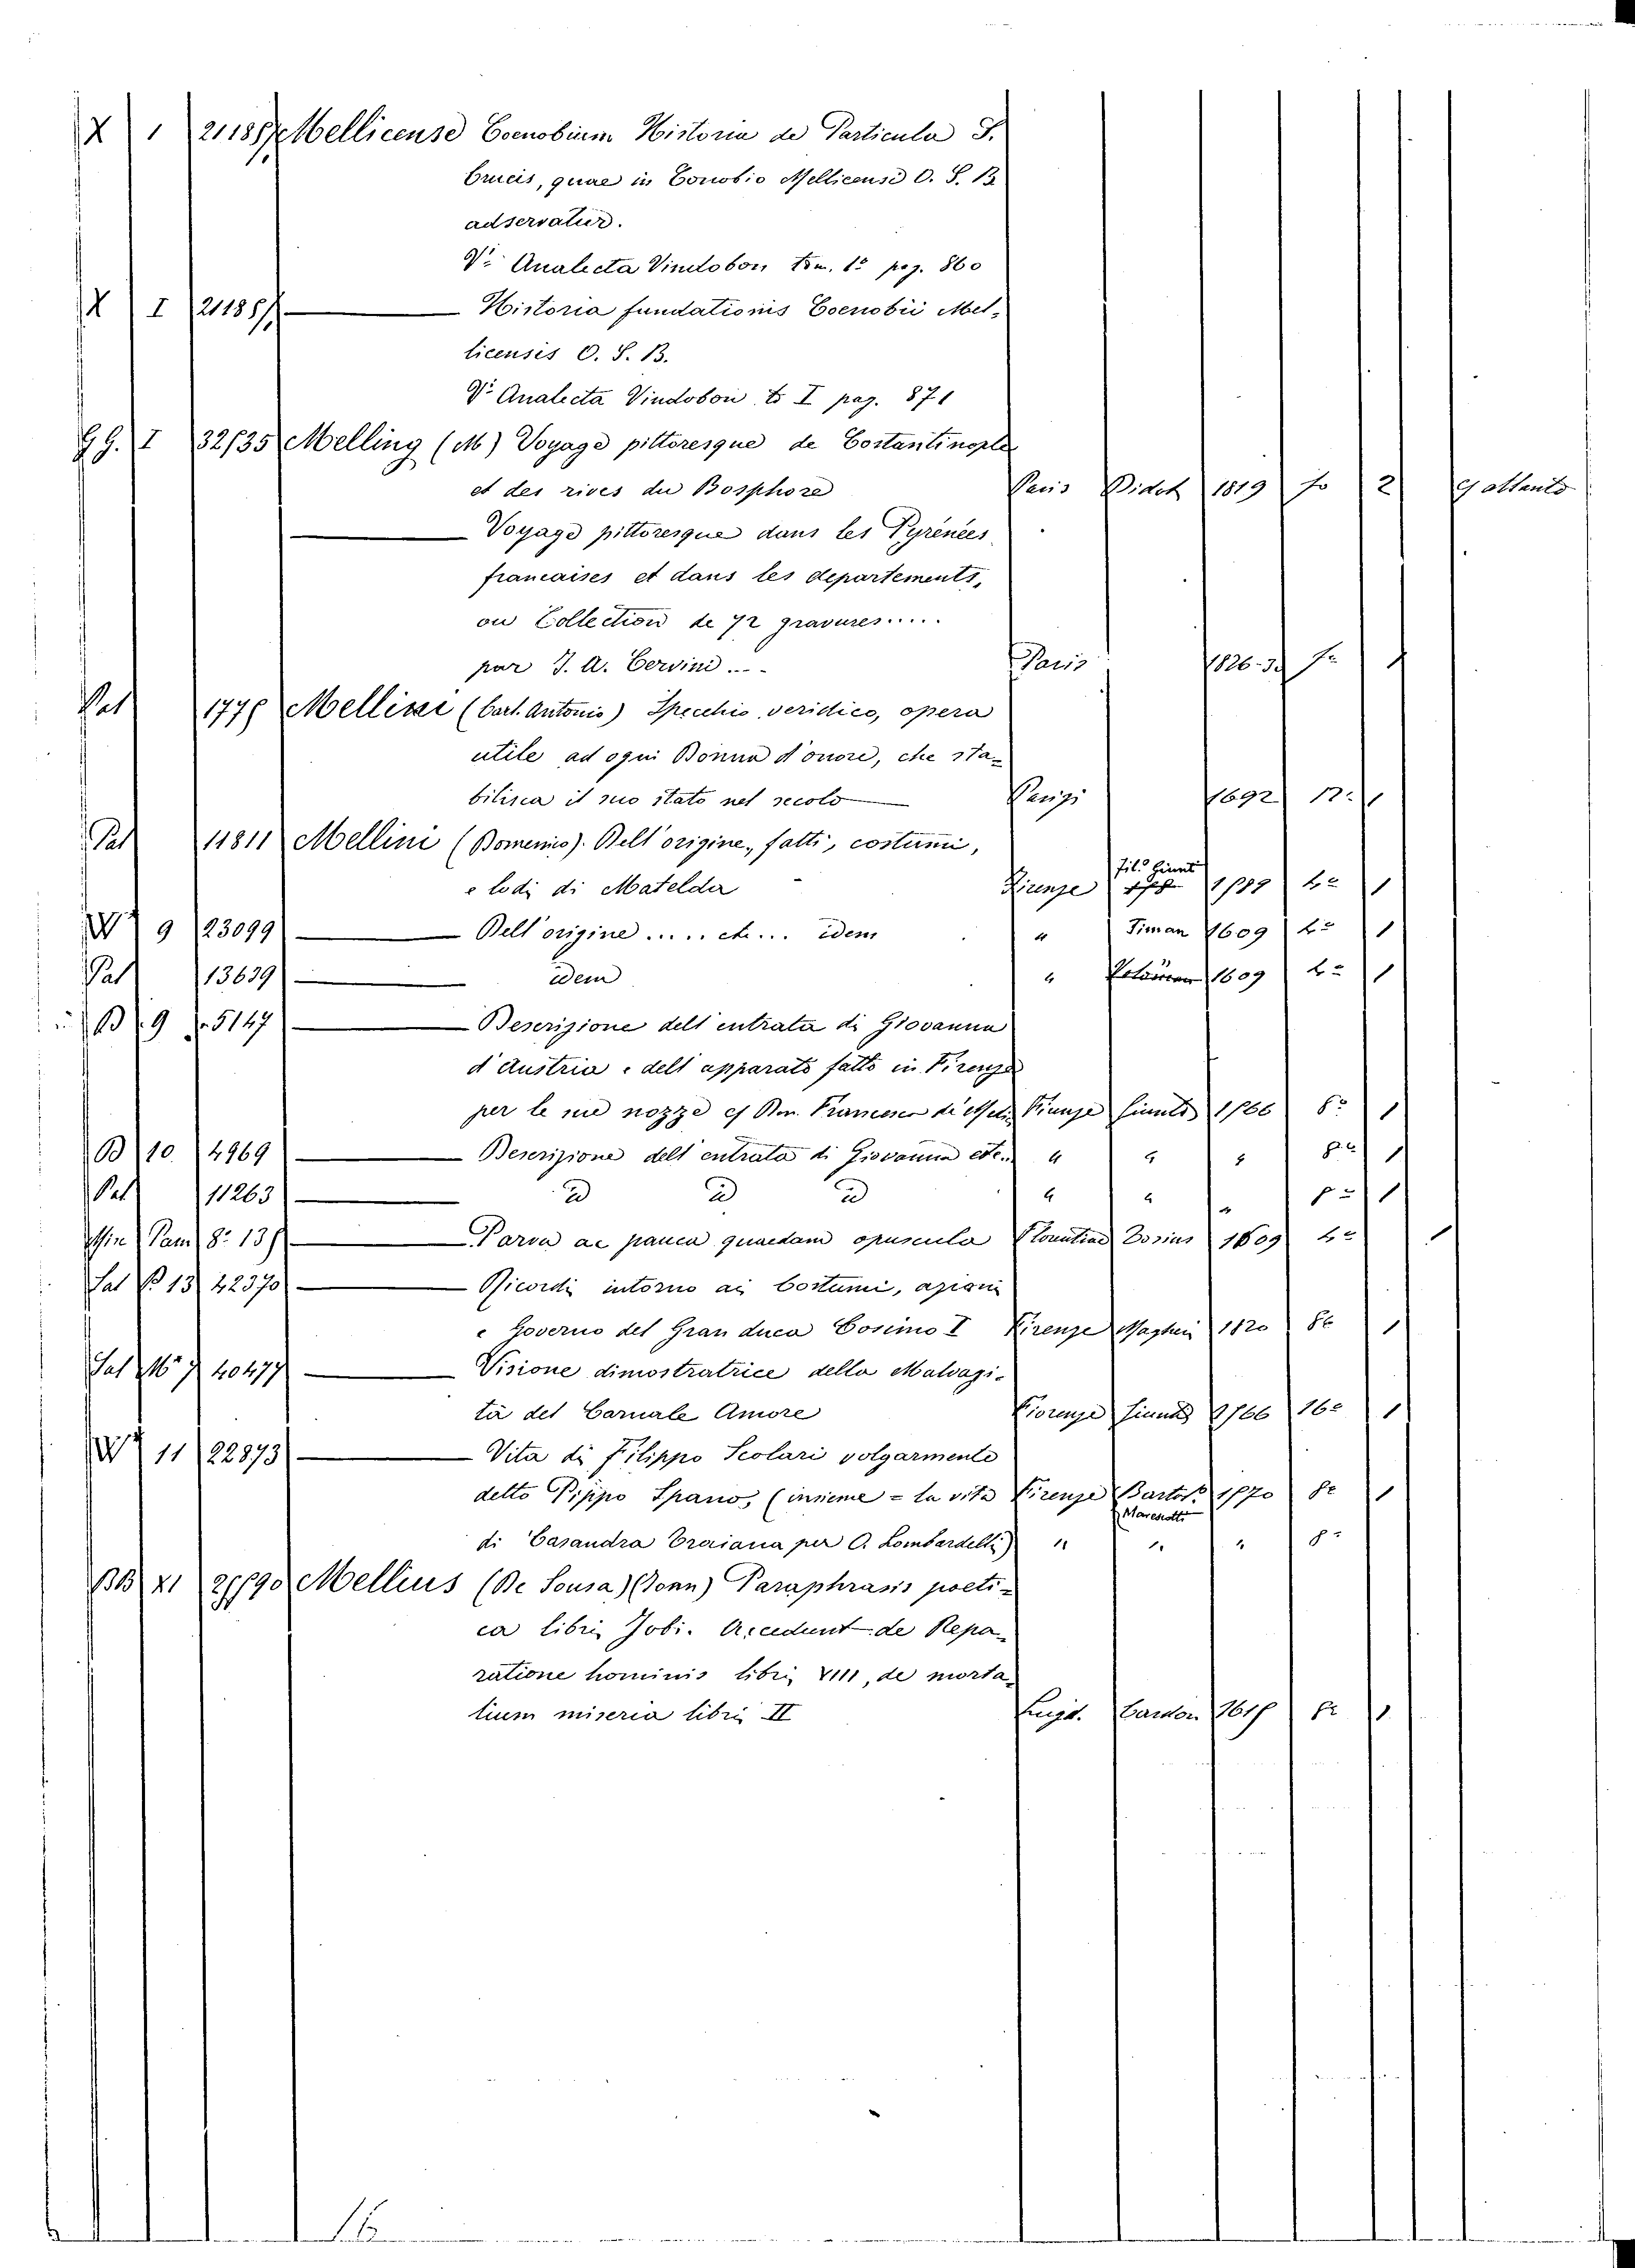 X 1 21185 Mellicense Coenobium Historia de Particula S.
Crucis, quae in Conobio Mellicense O. S. B
adservatur.
V. Analecta Vindobon tom. 1º pag. 860
X I 21185 Historia fundationis Coenobii Mel-
licensis O. S. B.
Vº Analecta Vindobon tº I pag. 871
GG. I 32/35 Melling (M) Voyage pittoresque de Costantinople
et des rives du Bosphore Paris Didot 1819 fo 2 G atlanto
Voyage pittoresque dans les Pyrénées
francaises et dans les departements,
ou Collection de 72 gravures.....
par J. A. Cervini.... Paris 1826-30 fo 1
Pal 1775 Mellini (Cart. Antonio) Specchio veridico, opera
utile ad ogni Donna d'onore, che sta-
bilisca il suo stato nel secolo Parigi 1692 12. 1
Pal 11811 Mellini (Domenico). Dell'origine, fatti, costumi,
e lodi di Matelda Firenze Fil.º Giunti 1589 4º 1
W 9 23099 Dell'origine..... etc... idem " Timan 1609 4º 1
Pal 13639 idem " 1609 4º 1
B 9 5147 Descrizione dell'entrata di Giovanna
d'Austria e dell'apparato fatto in Firenze
per le sue nozze Firenze Giunti 1566 8º 1
B 10. 4969 Descrizione dell'entrata di Giovanna etc. " " " 8º 1
Pal 11263 id id id " " " 8º 1
Min Pam 8º 135 Parva ac pauca quaedam opuscula Florentiae Zosius 1609 4º 1
Sal B 13 42370 Ricordi intorno ai Costumi, azioni
e Governo del Gran duca Cosimo I Firenze Magheri 1820 8º 1
Sal 40477 Visione dimostratrice della Malvagi-
tà del Carnale Amore Fiorenze Giunti 1566 16º 1
W 11 22873 Vita di Filippo Scolari volgarmente
detto Pippo Spano, (insieme = la vita Firenze Bartol. 1570 8º 1
Marescotti
di Casandra per O. Lombardelli) " " " 8º
BB XI Mellius (De Sousa) (Joan) Paraphrasis poeti-
ca libri Jobi. Accedunt de Repa-
ratione hominis libri VIII, de morta-
lium miseria libri II Lugd. Cardon 1615 8º 1